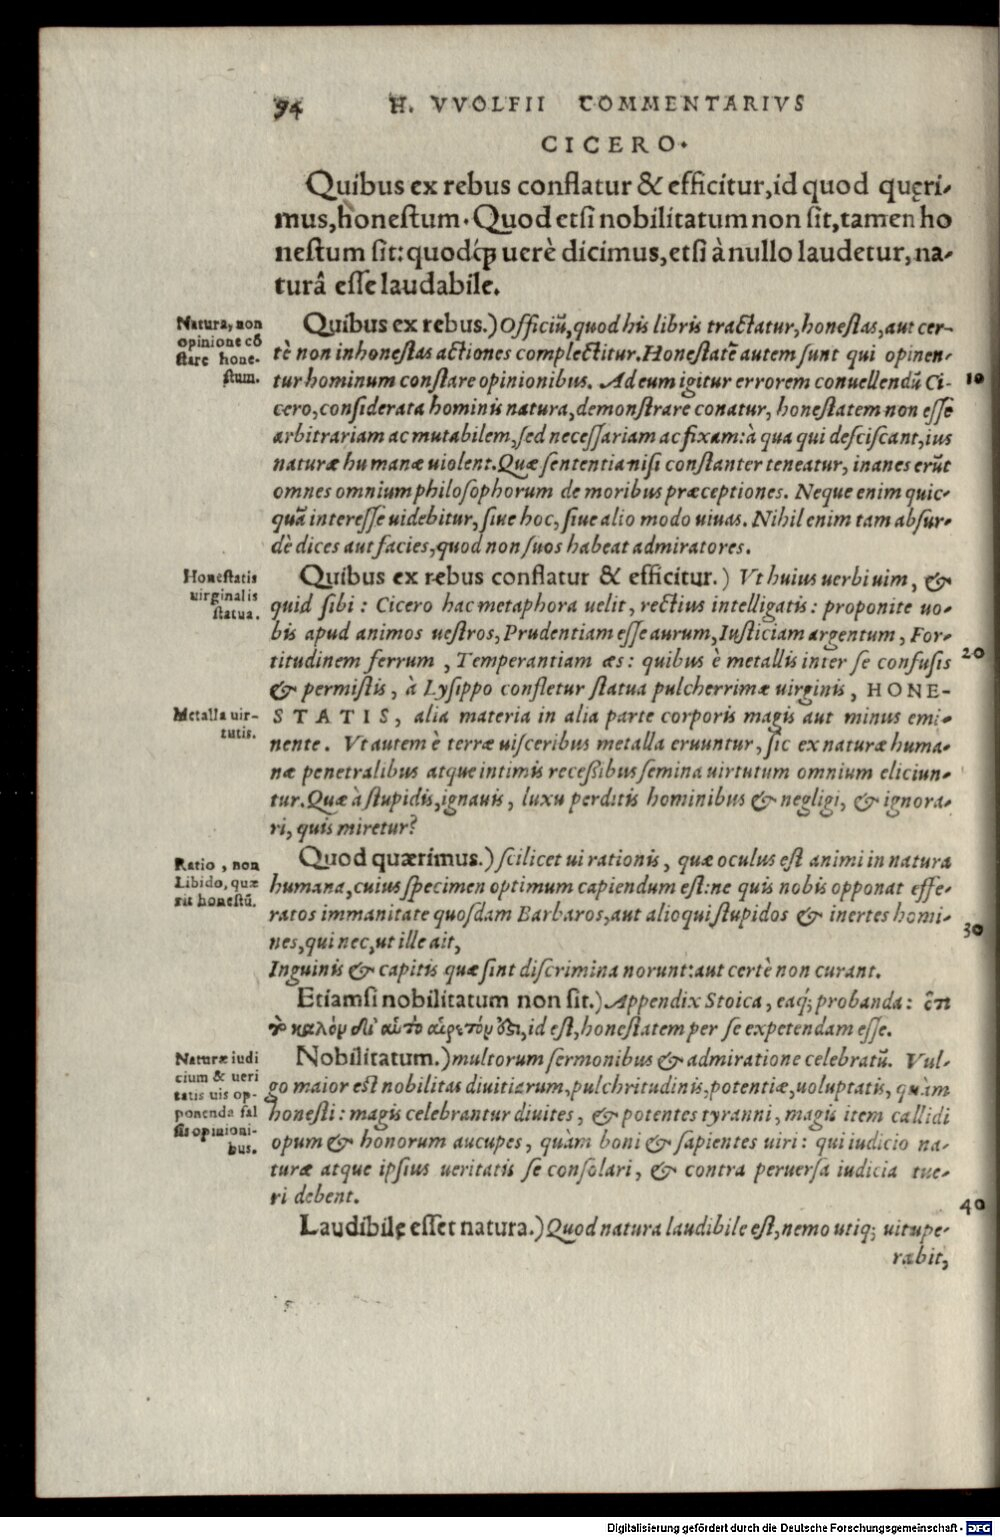 94 H. VVOLFII COMMENTARIVS
CICERO.
Quibus ex rebus conflatur & efficitur, id quod quęri-
mus, honestum. Quod etsi nobilitatum non sit, tamen ho
nestum sit: quodq́; uerè dicimus, etsi à nullo laudetur, na-
turâ esse laudabile.
Natura, non
opinione cō
stare hone-
stum.
Quibus ex rebus.) Officiū, quod his libris tractatur, honestas, aut cer-
tè non inhonestas actiones complectitur. Honestatē autem sunt qui opinen-
tur hominum constare opinionibus. Ad eum igitur errorem conuellendū Ci- 10
cero, considerata hominis natura, demonstrare conatur, honestatem non esse
arbitrariam ac mutabilem, sed necessariam ac fixam: à qua qui desciscant, ius
naturæ humanæ uiolent. Quæ sententia nisi constanter teneatur, inanes erūt
omnes omnium philosophorum de moribus præceptiones. Neque enim quic-
quā interesse uidebitur, siue hoc, siue alio modo uiuas. Nihil enim tam absur-
dè dices aut facies, quod non suos habeat admiratores.
Honestatis
uirginalis
statua.
Quibus ex rebus conflatur & efficitur.) Vt huius uerbi uim, &
quid sibi: Cicero hac metaphora uelit, rectius intelligatis: proponite uo-
bis apud animos uestros, Prudentiam esse aurum, Iusticiam argentum, For-
titudinem ferrum, Temperantiam æs: quibus è metallis inter se confusis 20
& permistis, à Lysippo confletur statua pulcherrimæ uirginis, HONE-
Metalla uir-
tutis.
STATIS, alia materia in alia parte corporis magis aut minus emi-
nente. Vt autem è terræ uisceribus metalla eruuntur, sic ex naturæ huma-
næ penetralibus atque intimis recessibus semina uirtutum omnium eliciun-
tur. Quæ à stupidis, ignauis, luxu perditis hominibus & negligi, & ignora-
ri, quis miretur?
Ratio, non
Libido, quæ
rit honestū.
Quod quærimus.) scilicet ui rationis, quæ oculus est animi in natura
humana, cuius specimen optimum capiendum est: ne quis nobis opponat effe-
ratos immanitate quosdam Barbaros, aut alioqui stupidos & inertes homi- 30
nes, qui nec, ut ille ait,
Inguinis & capitis quæ sint discrimina norunt: aut certè non curant.
Etiamsi nobilitatum non sit.) Appendix Stoica, eaq́; probanda: ὅτι
τὸ καλὸν δι' αὑτὸ αἱρετόν ὅςι, id est, honestatem per se expetendam esse.
Naturæ iudi
cium & ueri
tatis uis op-
ponenda fal
sis opinioni-
bus.
Nobilitatum.) multorum sermonibus & admiratione celebratū. Vul-
go maior est nobilitas diuitiarum, pulchritudinis, potentiæ, uoluptatis, quàm
honesti: magis celebrantur diuites, & potentes tyranni, magis item callidi
opum & honorum aucupes, quàm boni & sapientes uiri: qui iudicio na-
turæ atque ipsius ueritatis se consolari, & contra peruersa iudicia tue-
ri debent. 40
Laudibile esset natura.) Quod natura laudibile est, nemo utiq; uitupe-
rabit,
Digitalisierung gefördert durch die Deutsche Forschungsgemeinschaft - DFG